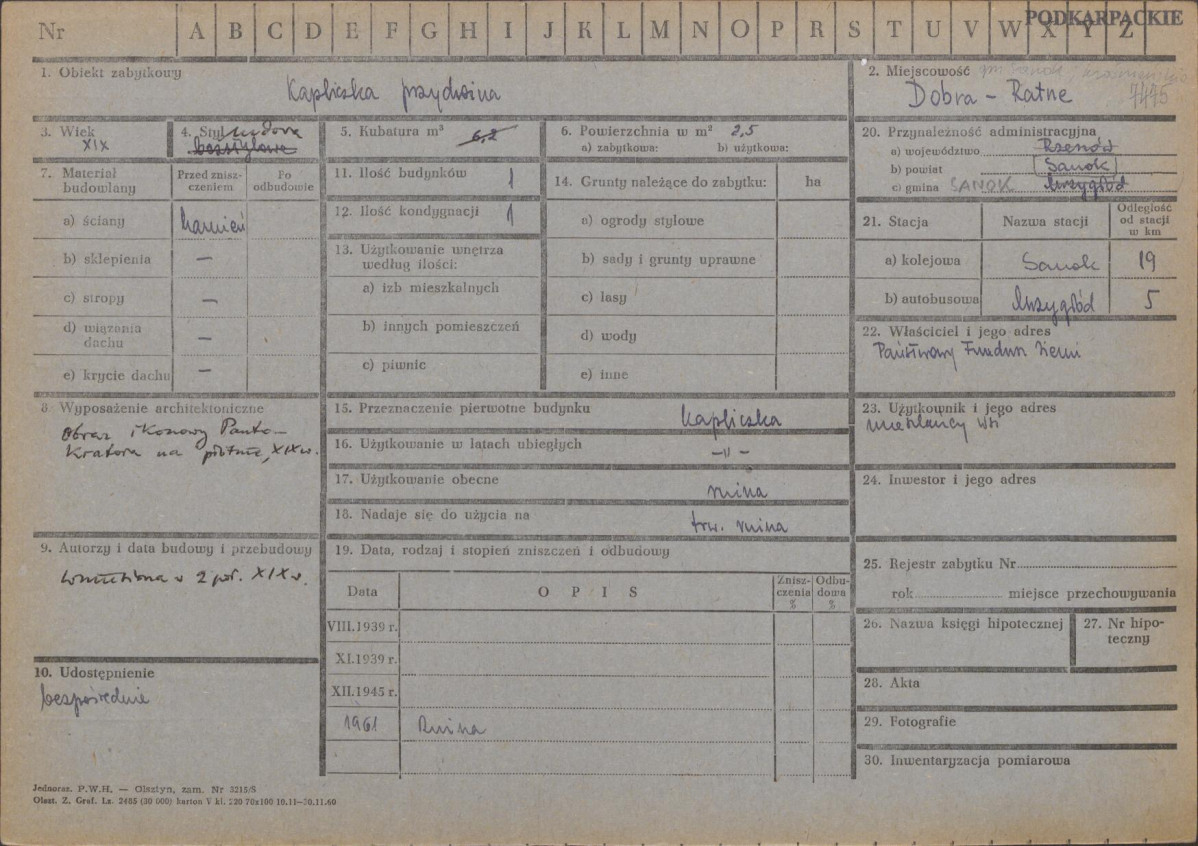 Nr A B C D E F G H I J K L M N O P R S T U V W X Y Z
PODKARPACKIE
1. Obiekt zabytkowy
Kapliczka przydwina
2. Miejscowość gm. Sanok
Dobra - Ratne 7495
3. Wiek
XIX
4. Styl ludowa
bezstylowa
5. Kubatura m³ 6,2
6. Powierzchnia w m² 2,5
a) zabytkowa: b) użytkowa:
20. Przynależność administracyjna
a) województwo Rzeszów
b) powiat Sanok
c) gmina SANOK Mrzygłód
7. Materiał budowlany
Przed zniszczeniem
Po odbudowie
a) ściany kamień
b) sklepienia —
c) stropy —
d) wiązania dachu —
e) krycie dachu —
11. Ilość budynków 1
12. Ilość kondygnacji 1
13. Użytkowanie wnętrza
według ilości:
a) izb mieszkalnych
b) innych pomieszczeń
c) piwnic
14. Grunty należące do zabytku: ha
a) ogrody stylowe
b) sady i grunty uprawne
c) lasy
d) wody
e) inne
21. Stacja Nazwa stacji
Odległość
od stacji
w km
a) kolejowa Sanok 19
b) autobusowa Mrzygłód 5
22. Właściciel i jego adres
Państwowy Fundusz Ziemi
8 Wyposażenie architektoniczne
Obraz ikonowy Panto-
kratora na płótnie, XIX w.
15. Przeznaczenie pierwotne budynku kapliczka
16. Użytkowanie w latach ubiegłych -"-
17. Użytkowanie obecne ruina
18. Nadaje się do użycia na trw. ruina
23. Użytkownik i jego adres
mieszkańcy wsi
24. Inwestor i jego adres
9. Autorzy i data budowy i przebudowy
wzniesiona w 2 poł. XIX w.
10. Udostępnienie
bezpośrednie
19. Data, rodzaj i stopień zniszczeń i odbudowy
Data O P I S
Zniszczenia %
Odbudowa %
VIII.1939 r.
XI.1939 r.
XII.1945 r.
1961 Ruina
25. Rejestr zabytku Nr
rok miejsce przechowywania
26. Nazwa księgi hipotecznej
27. Nr hipo-
teczny
28. Akta
29. Fotografie
30. Inwentaryzacja pomiarowa
Jednoraz. P.W.H. — Olsztyn, zam. Nr 3215/S
Olszt. Z. Graf. Lz. 2485 (30 000) karton V kl. 220 70x100 10.11—30.11.60